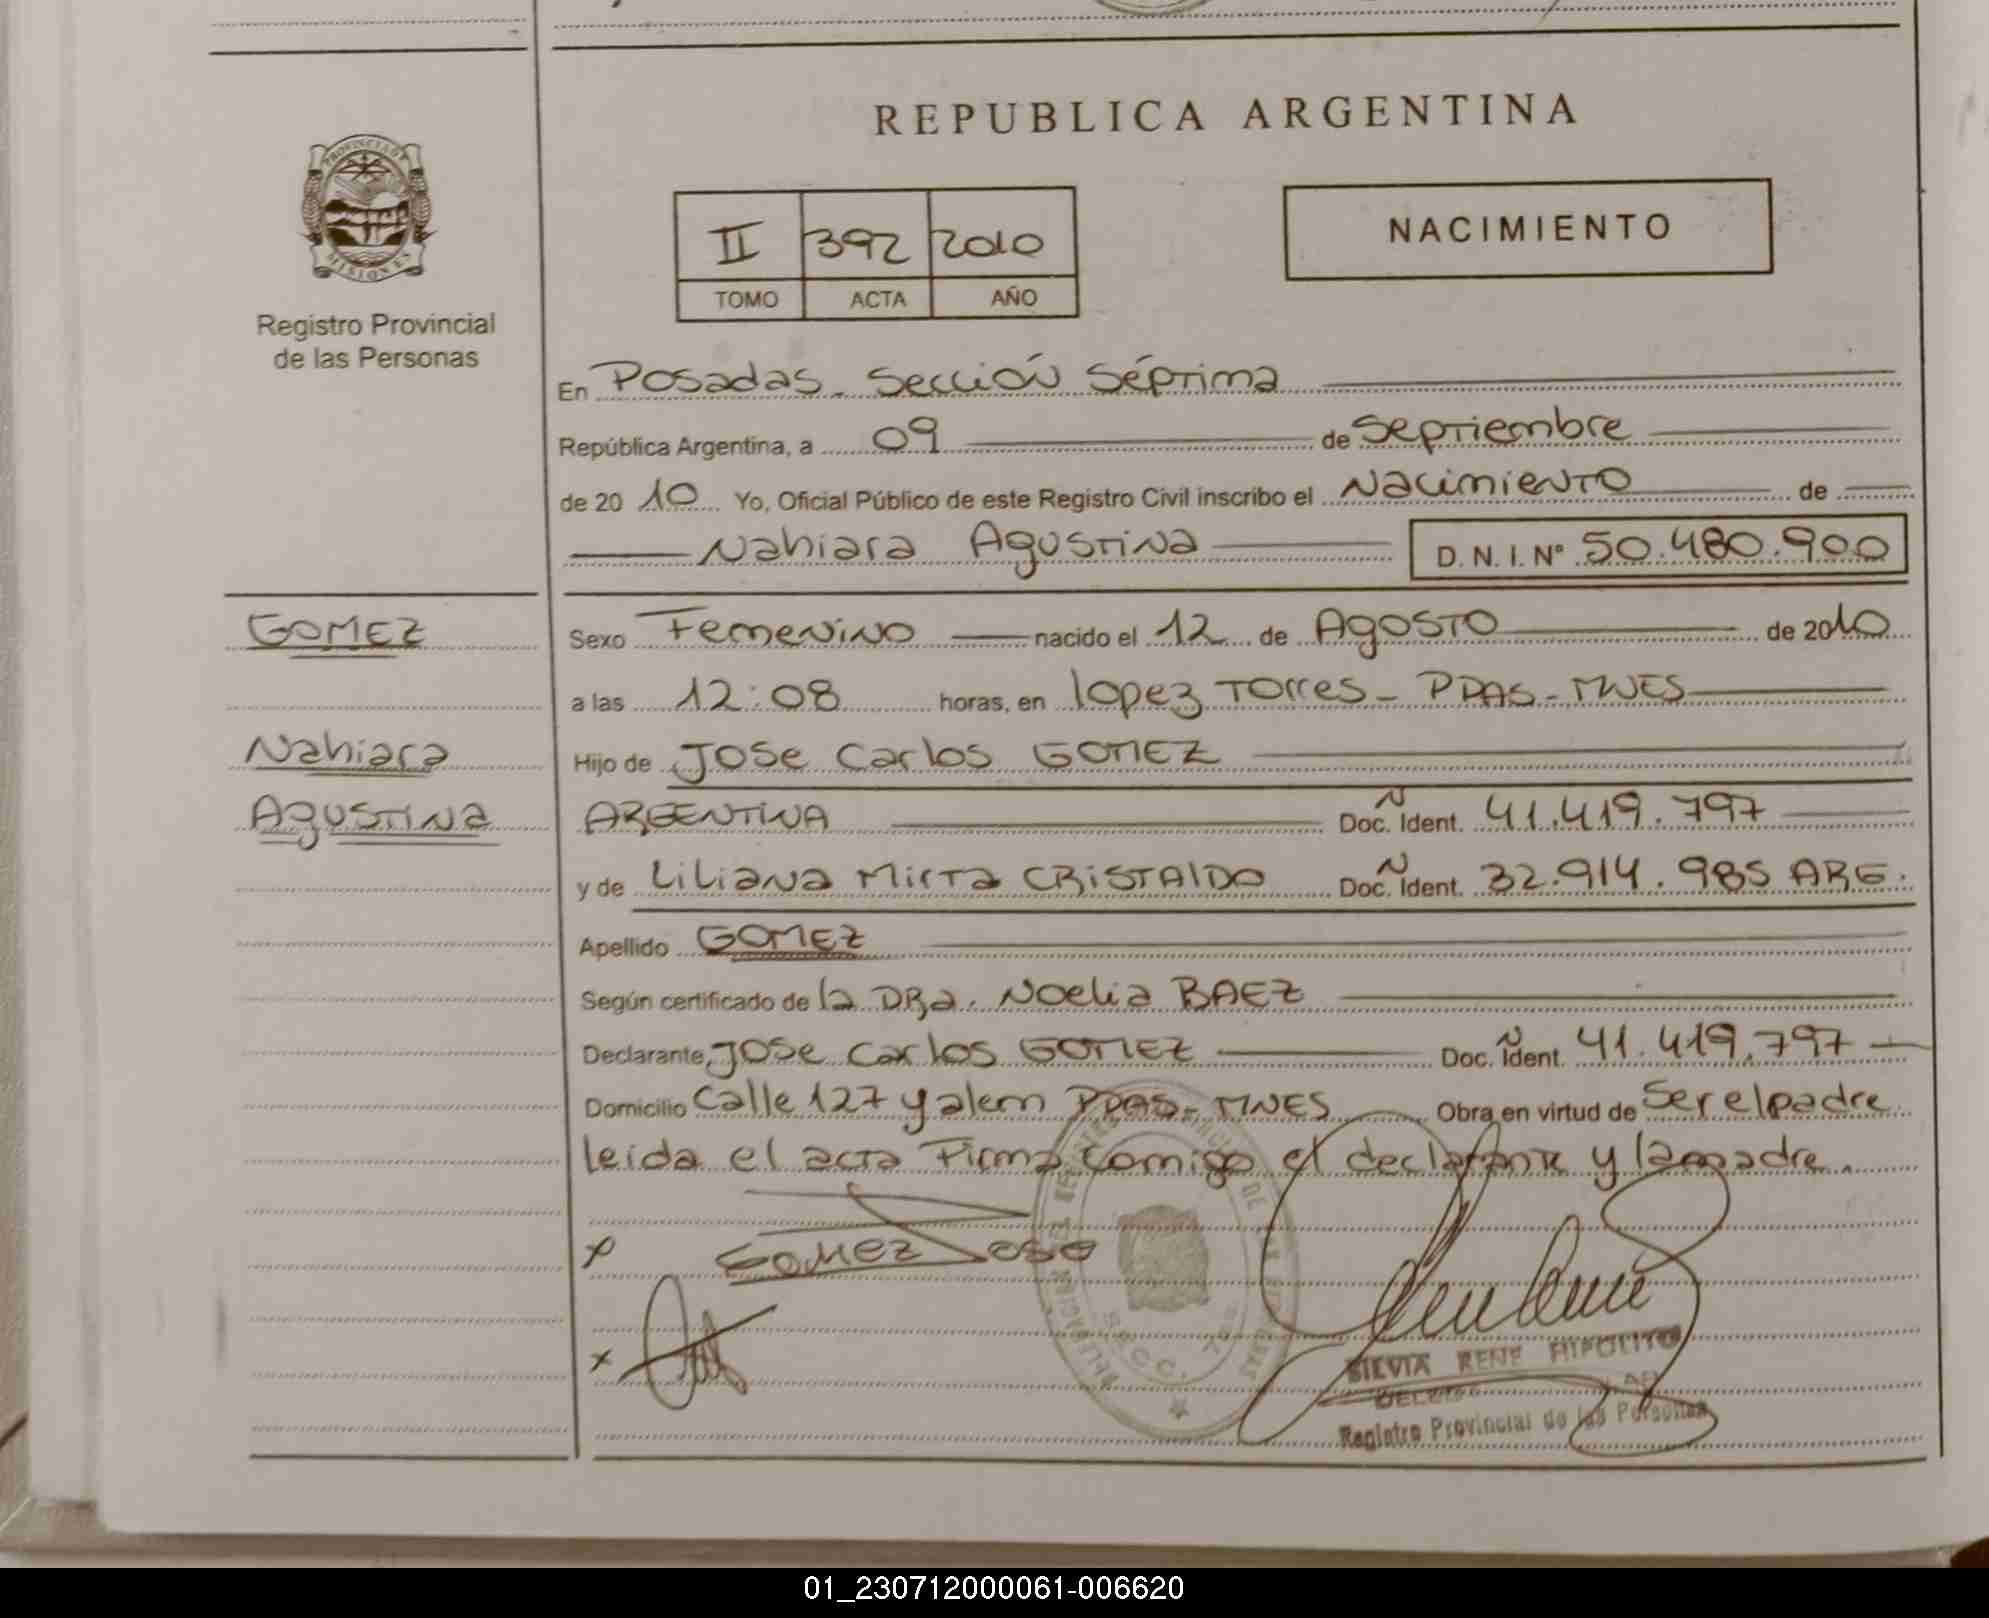 REPUBLICA ARGENTINA
PROVINCIA DE
MISIONES
Registro Provincial
de las Personas
II 392 2010
TOMO ACTA AÑO
NACIMIENTO
En Posadas - Sección Séptima
República Argentina, a 09 de Septiembre
de 20 10 Yo, Oficial Público de este Registro Civil inscribo el Nacimiento de
Nahiara Agustina D. N. I. Nº 50.480.900
GOMEZ
Sexo Femenino nacido el 12 de Agosto de 2010
a las 12:08 horas, en lopez Torres - PDAS - MNES
Nahiara
Hijo de Jose Carlos GOMEZ
Agustina
ARGENTINA Doc. Ident. Ñ 41.419.797
y de Liliana Mirta CRISTALDO Doc. Ident. Ñ 32.914.985 ARG.
Apellido GOMEZ
Según certificado de la DRa. Noelia BAEZ
Declarante, Jose Carlos GOMEZ Doc. Ident. Ñ 41.419.797
Domicilio Calle 127 y alem PDAS - MNES Obra en virtud de Ser el padre
leida el acta Firma comigo el declarante y la madre.
x GOMEZ JOSE
x
SECC. 7ma.
SILVIA RENE HIPOLITO
Registro Provincial de las Personas
01_230712000061-006620